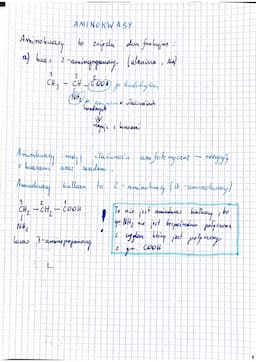 AMINOKWASY
Aminokwasy to związki dwufunkcyjne:
a) kwas 2-aminopropanowy (alanina, Ala)
CH₃ – CH – COOH
NH₂
Aminokwasy mają właściwości amfoteryczne – reagują
z kwasami oraz zasadami.
Aminokwasy białkowe to 2-aminokwasy (α-aminokwasy)
CH₂ – CH₂ – COOH
NH₂
kwas 3-aminopropanowy
! To nie jest aminokwas białkowy, bo
gr. NH₂ nie jest bezpośrednio połączona
z węglem, który jest połączony
z gr. COOH